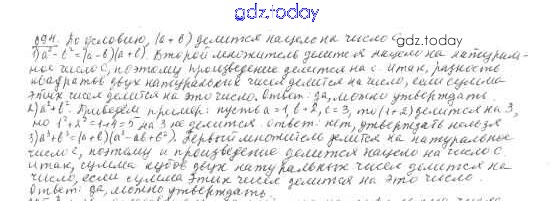 gdz.today
894. По условию, (a+b) делится нацело на число c.
1) a²-b²=(a-b)(a+b). Второй множитель делится нацело на натураль-
ное число c, поэтому произведение делится на c. Итак, разность
квадратов двух натуральных чисел делится на число, если сумма
этих чисел делится на это число. Ответ: да, можно утверждать.
2) a²+b². Приведем пример: пусть a=1, b=2, c=3, то (1+2) делится на 3,
но 1²+2²=1+4=5, на 3 не делится. Ответ: нет, утверждать нельзя
3) a³+b³=(a+b)(a²-ab+b²). Первый множитель делится на натуральное
число c, поэтому и произведение делится нацело на число c.
Итак, сумма кубов двух натуральных чисел делится на
число, если сумма этих чисел делится на это число.
Ответ: да, можно утверждать.
gdz.today